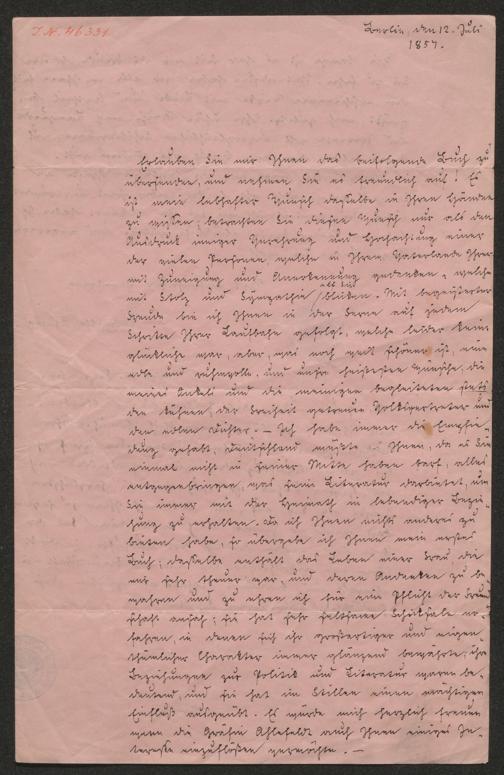 I.N. 46331
Berlin, den 12. Juli
1857.
Erlauben Sie mir Ihnen das beifolgende Buch zu
übersenden, und nehmen Sie es freundlich auf! Es
ist mein lebhafter Wunsch dasselbe in Ihren Händen
zu wissen; betrachten Sie diesen Wunsch nur als den
Ausdruck inniger Verehrung und Hochachtung einer
der vielen Personen, welche in Ihrem Vaterlande Ihrer
mit Zuneigung und Anerkennung gedenken, welche
mit Stolz und Sympathie auf Sie blicken. Mit begeisterter
Freude bin ich Ihnen in der Ferne auf jedem
Schritte Ihrer Laufbahn gefolgt, welche leider keine
glückliche war, aber, was noch weit schöner ist, eine
edle und ruhmvolle, und unsre heißesten Wünsche, die
meines Onkels und die meinigen begleiteten stets
den kühnen, der Freiheit getreuen Volksvertreter und
den edlen Dichter. – Ich habe immer die Empfin-
dung gehabt, Deutschland müßte Ihnen, da es Sie
einmal nicht in seiner Mitte haben darf, alles
entgegenbringen, was seine Literatur darbietet, um
Sie immer mit der Heimath in lebendiger Bezie-
hung zu erhalten. Da ich Ihnen nichts anderes zu
bieten habe, so übergebe ich Ihnen mein erstes
Buch; dasselbe enthält das Leben einer Frau, die
mir sehr theuer war, und deren Andenken zu be-
wahren und zu ehren ich für eine Pflicht der Freund-
schaft ansah; sie hat sehr seltsame Schicksale er-
fahren, in denen sich ihr großartiger und eigen-
thümlicher Charakter immer glänzend bewährte; ihre
Beziehungen zur Politik und Literatur waren be-
deutend, und sie hat im Stillen einen mächtigen
Einfluß ausgeübt. Es würde mich herzlich freuen
wenn die Gräfin Ahlefeldt auch Ihnen einiges In-
teresse einzuflößen vermöchte. –